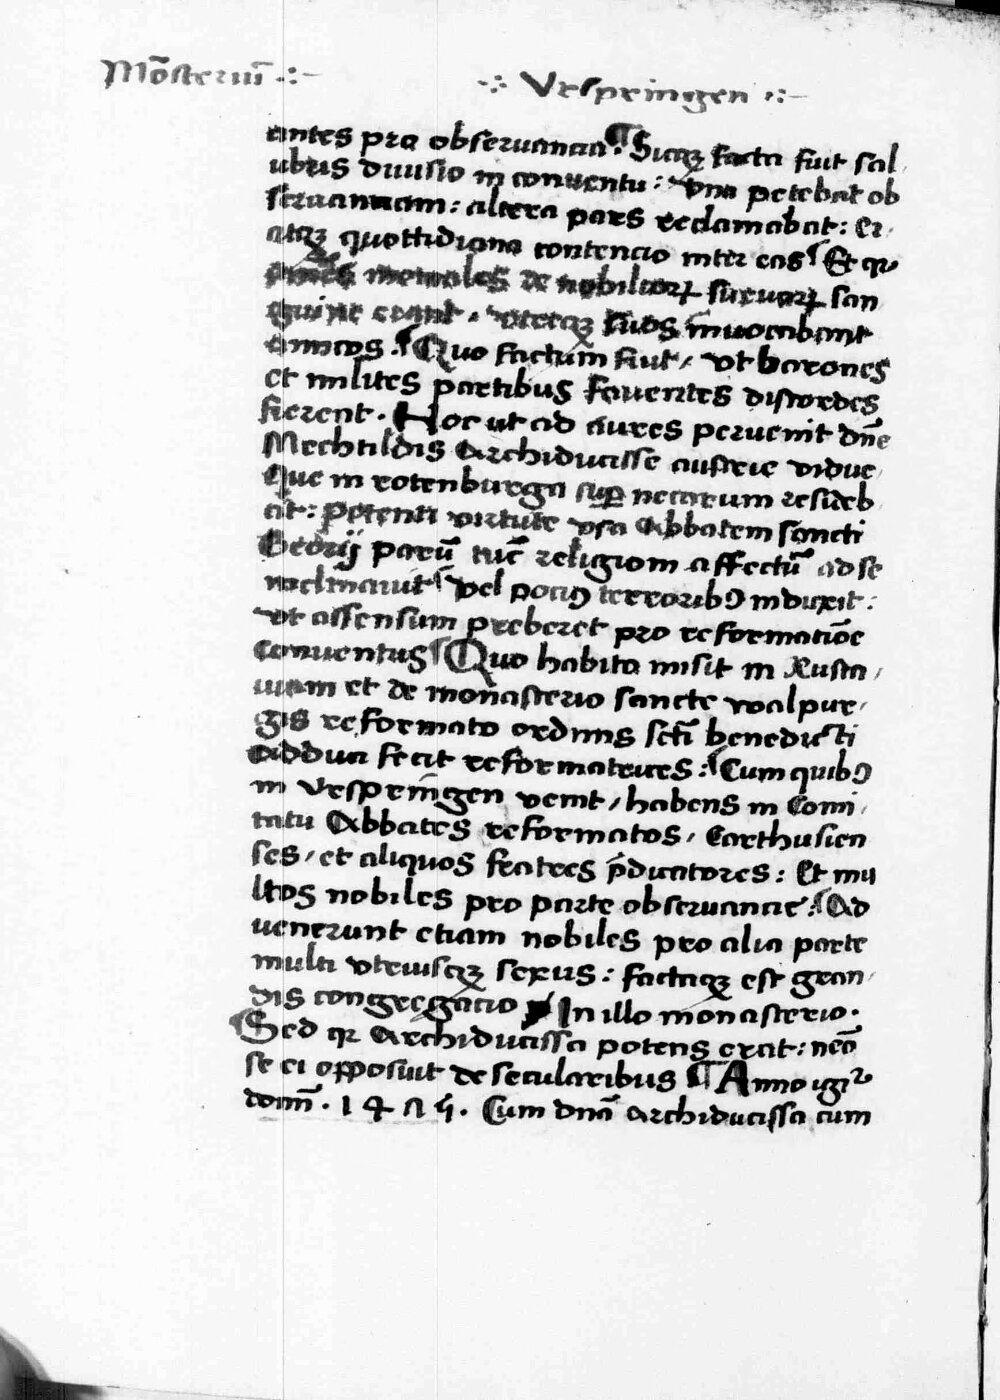 Mōsteriū ·:-
·:· Vrspringen ·:-
antes pro obseruancia. ¶ Sicqꝫ facta fuit sal
ubris diuisio in conuentu: Vna petebat ob
seruanciam: altera pars reclamabat: Er
atqꝫ quottidiana contencio inter eas Et qꝛ
om̄es moniales de nobilioꝝ sueuoꝝ san
guine erant. vtreqꝫ suos inuocabant
amicos. Quo factum fuit, vt barones
et milites partibus fauentes discordes
fierent. Hoc ut ad aures peruenit dn̄e
Mechtildis Archiducisse austrie vidue
Que in rotenburga suꝑ neccarum resideb
at: potenti virtute vsa Abbatem sancti
Georij parū tūc religiom affectū ad se
inclinauit Vel pociꝰ terroribꝰ induxit:
vt assensum preberet pro reformatiōe
conuentus Quo habito misit in Eusta
uiam et de monasterio sancte walpur
gis reformato ordinis sctī benedicti
adduci fecit reformatrices: Cum quibꝰ
in Vrspringen venit, habens in Comi
tatu Abbates reformatos, Carthusien
ses, et aliquos fratres p̄dicatores: Et mu
ltos nobiles pro parte obseruancie: Ad
uenerunt etiam nobiles pro alia parte
multi vtriusqꝫ sexus: factaqꝫ est gran
dis congregacio In illo monasterio.
Sed qꝛ Archiducissa potens erat: nemō
se ei opposuit de secularibus ¶ Anno igiꝛ
domī. 1475. Cum dn̄a archiducissa cum